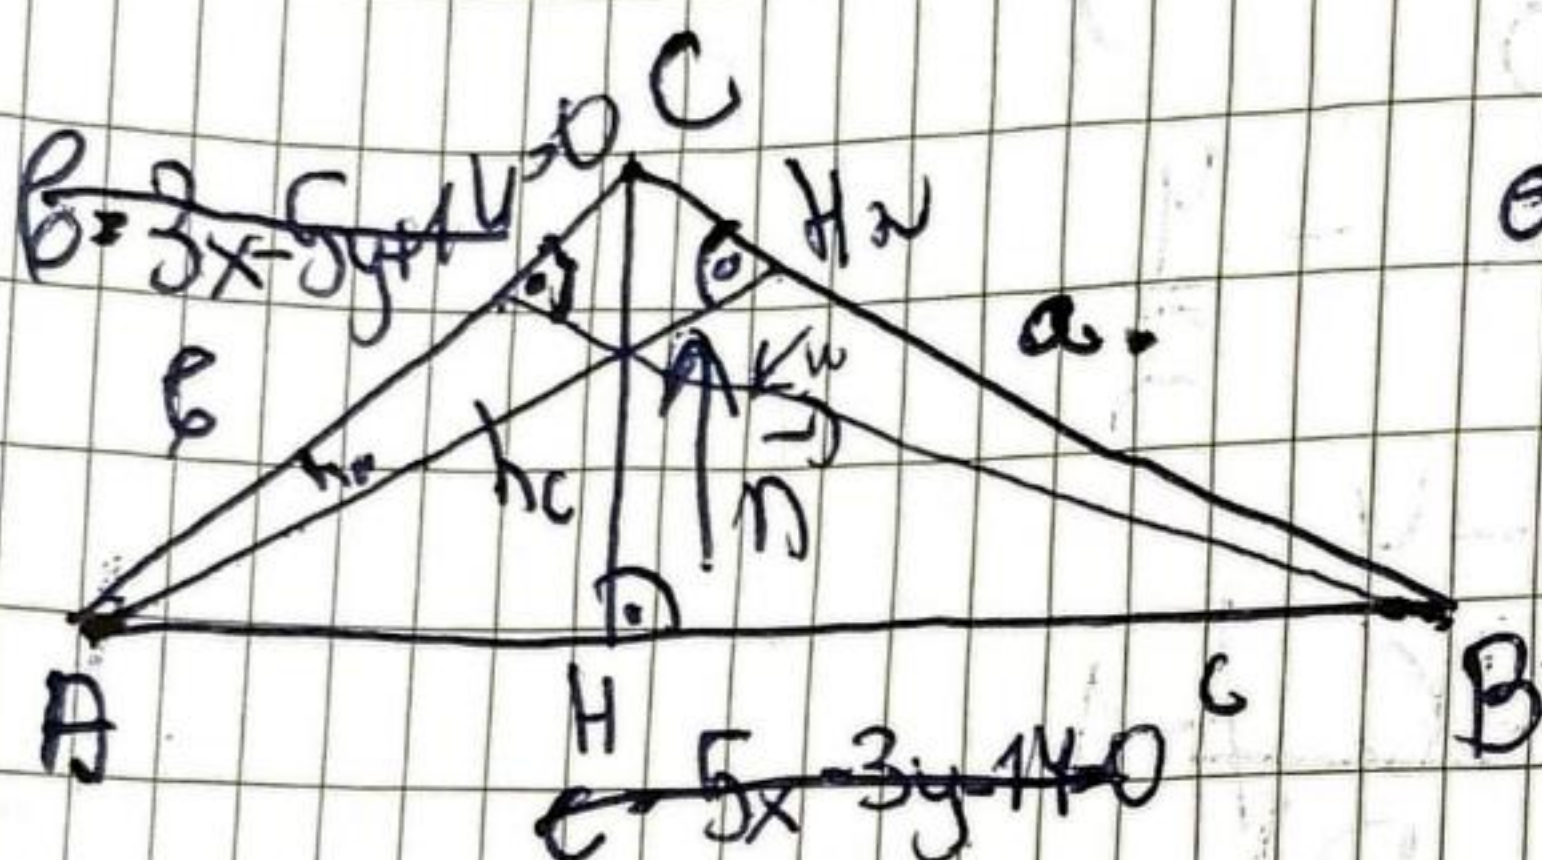 C
b: 3x-5y+14=0
H
a.
b
hc
n
A
H
c
B
c: 5x-3y-14=0